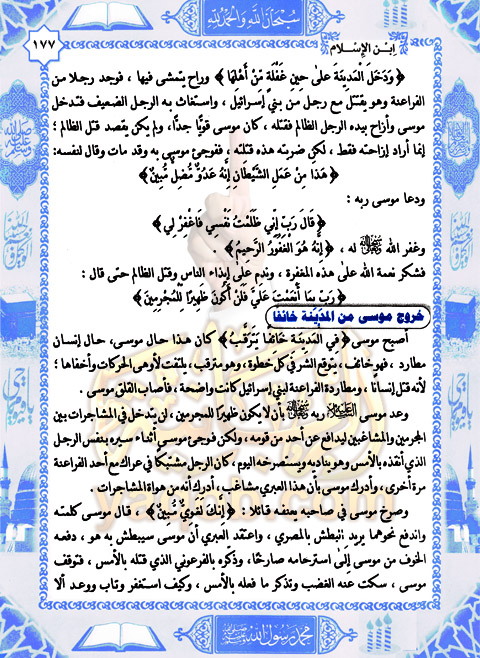 سبحان الله والحمد لله
ابن الإسلام
١٧٧
﴿ وَدَخَلَ الْمَدِينَةَ عَلَى حِينِ غَفْلَةٍ مِّنْ أَهْلِهَا ﴾ وراح يتمشى فيها ، فوجد رجلا من
الفراعنة وهو يقتتل مع رجل من بني إسرائيل ، واستغاث به الرجل الضعيف فتدخل
موسى وأزاح بيده الرجل الظالم فقتله ، كان موسى قويًّا جدًّا، ولم يكن يقصد قتل الظالم ؛
إنما أراد إزاحته فقط ، لكن ضربته هذه قتلته ، ففوجئ موسى به وقد مات وقال لنفسه:
﴿ هَذَا مِنْ عَمَلِ الشَّيْطَانِ إِنَّهُ عَدُوٌّ مُّضِلٌّ مُّبِينٌ ﴾
ودعا موسى ربه :
﴿ قَالَ رَبِّ إِنِّي ظَلَمْتُ نَفْسِي فَاغْفِرْ لِي ﴾
وغفر الله له ، ﴿ إِنَّهُ هُوَ الْغَفُورُ الرَّحِيمُ ﴾
فشكر نعمة الله على هذه المغفرة ، وندم على إيذاء الناس وقتل الظالم حتى قال :
﴿ رَبِّ بِمَا أَنْعَمْتَ عَلَيَّ فَلَنْ أَكُونَ ظَهِيرًا لِّلْمُجْرِمِينَ ﴾
خروج موسى من المدينة خائفا
أصبح موسى ﴿ فِي الْمَدِينَةِ خَائِفًا يَتَرَقَّبُ ﴾ كان هذا حال موسى، حال إنسان
مطارد ، فهو خائف ، يتوقع الشر في كل خطوة، وهو مترقب ، يلتفت لأوهى الحركات وأخفاها ؛
لأنه قتل إنسانًا ، ومطاردة الفراعنة لبني إسرائيل كانت واضحة ، فأصاب القلق موسى .
وعد موسى ربه بأن لا يكون ظهيرًا للمجرمين، لن يتدخل في المشاجرات بين
المجرمين والمشاغبين ليدافع عن أحد من قومه ، ولكن فوجئ موسى أثناء سيره بنفس الرجل
الذي أنقذه بالأمس وهو يناديه ويستصرخه اليوم ، كان الرجل مشتبكًا في عراك مع أحد الفراعنة
مرة أخرى ، وأدرك موسى بأن هذا العبري مشاغب ، أدرك أنه من هواة المشاجرات .
وصرخ موسى في صاحبه يعنفه قائلا : ﴿ إِنَّكَ لَغَوِيٌّ مُّبِينٌ ﴾ ، قال موسى كلمته
واندفع نحوهما يريد البطش بالمصري ، واعتقد العبري أن موسى سيبطش به هو ، دفعه
الخوف من موسى إلى استرحامه صارخًا، وذكَّره بالفرعوني الذي قتله بالأمس ، فتوقف
موسى ، سكت عنه الغضب وتذكر ما فعله بالأمس ، وكيف استغفر وتاب ووعد ألا
محمد رسول الله